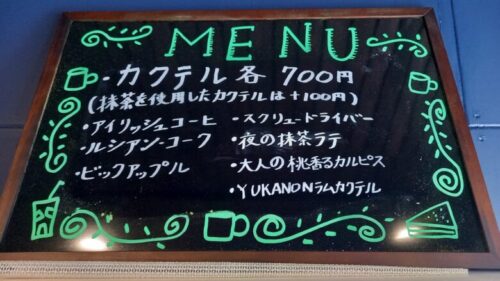 MENU
・カクテル 各 700円
(抹茶を使用したカクテルは+100円)
・アイリッシュコーヒ
・ルシアン・コーク
・ビックアップル
・スクリュードライバー
・夜の抹茶ラテ
・大人の桃香るカルピス
・YUKANONラムカクテル